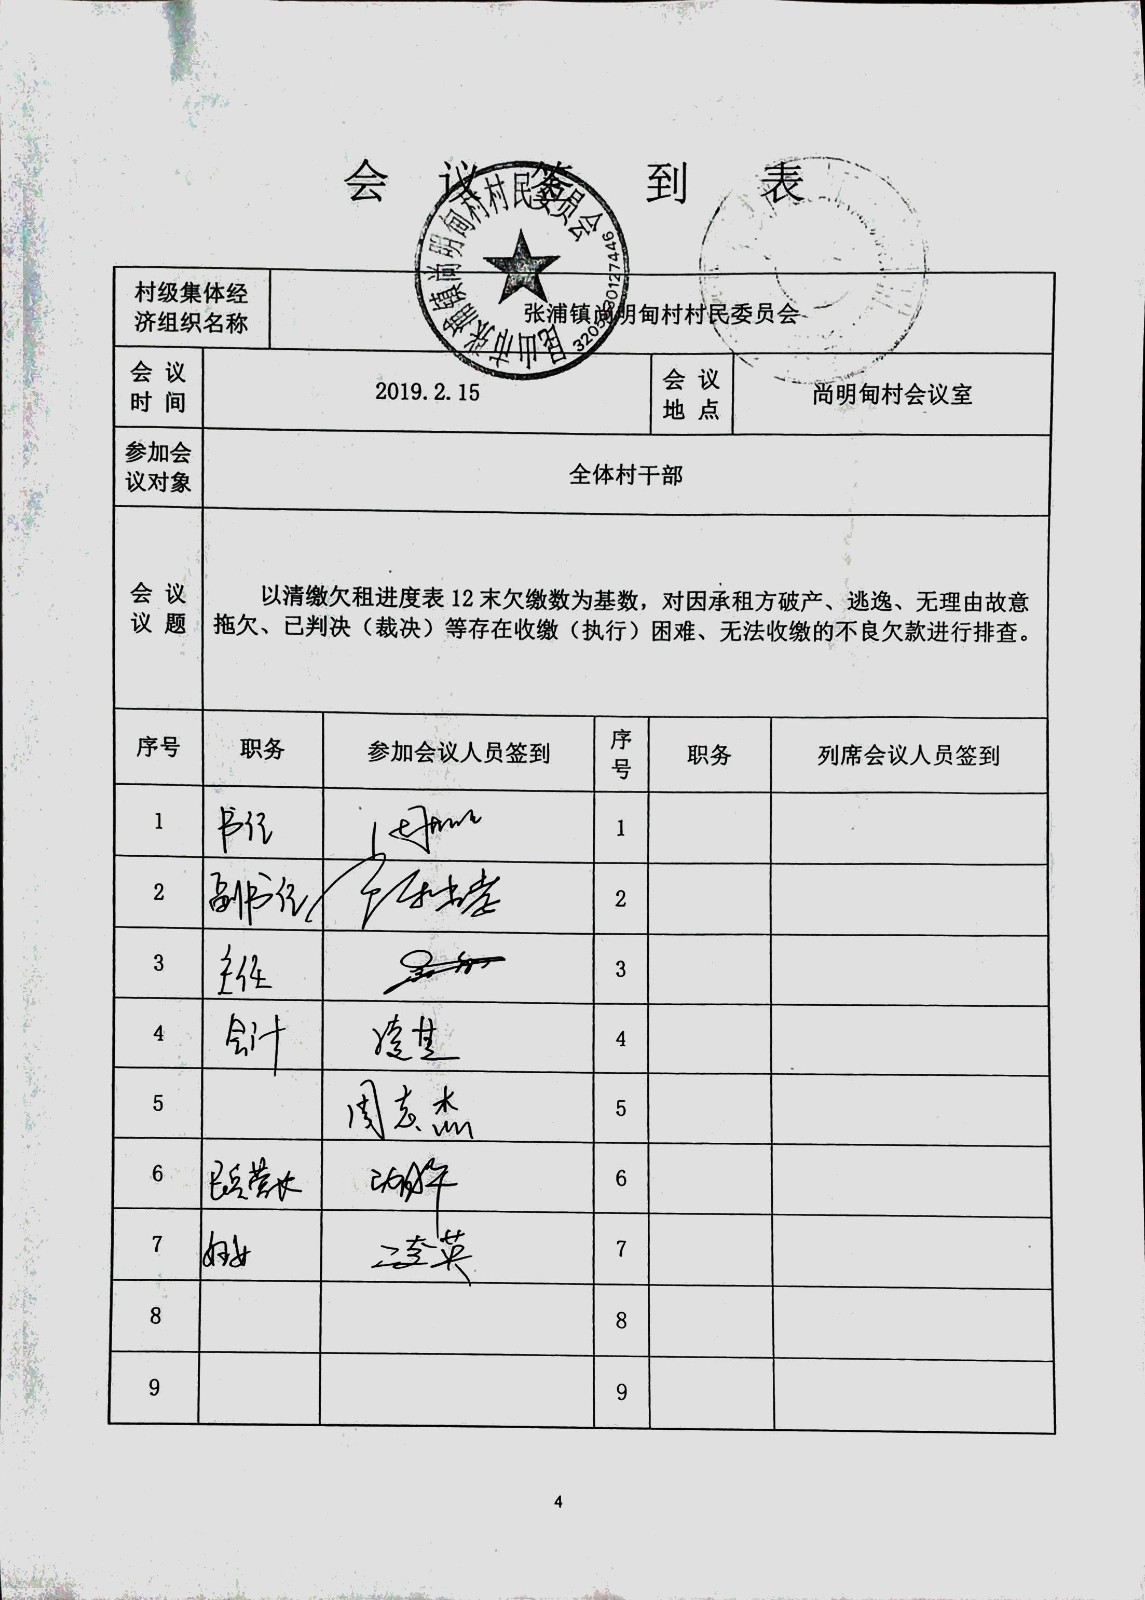 会议签到表
昆山市张浦镇尚明甸村村民委员会
村级集体经
济组织名称
张浦镇尚明甸村村民委员会
会议
时间
2019.2.15
会议
地点
尚明甸村会议室
参加会
议对象
全体村干部
会议
议题
以清缴欠租进度表12末欠缴数为基数，对因承租方破产、逃逸、无理由故意
拖欠、已判决（裁决）等存在收缴（执行）困难、无法收缴的不良欠款进行排查。
序号 职务 参加会议人员签到 序号 职务 列席会议人员签到
1 书记 1
2 副书记 2
3 主任 3
4 会计 4
5 周志杰 5
6 民兵营长 6
7 妇女 7
8 8
9 9
4